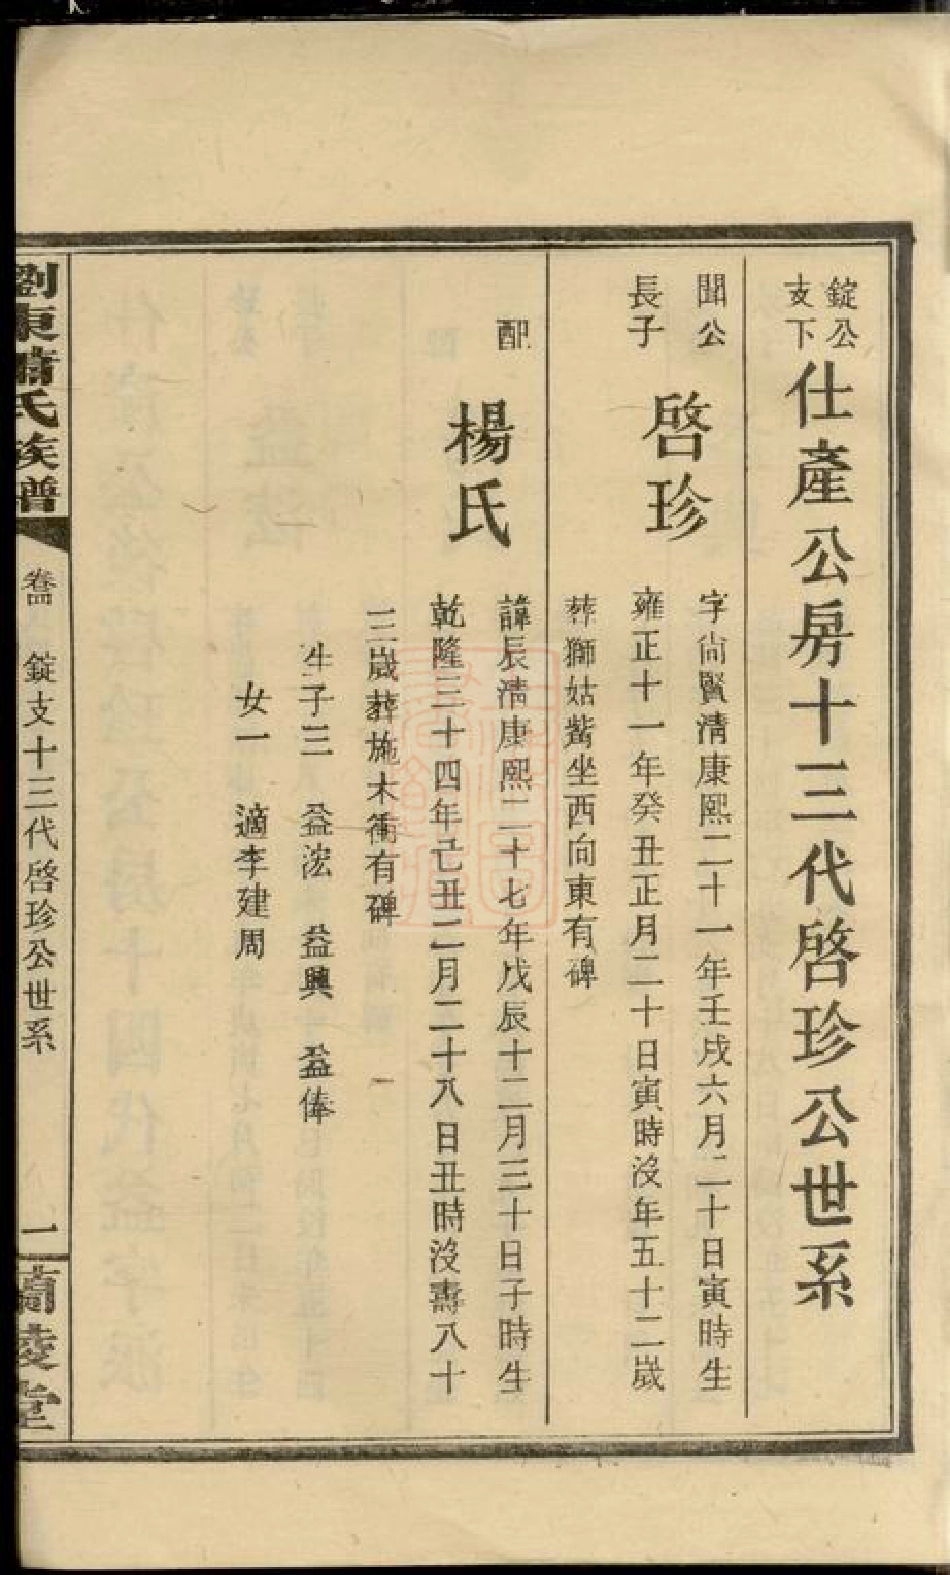 錠公
支下
仕產公房十三代啓珍公世系
聞公
長子
啓珍
字尙賢淸康熙二十一年壬戌六月二十日寅時生
雍正十一年癸丑正月二十日寅時沒年五十二歲
葬獅姑觜坐西向東有碑
配
楊氏
諱辰淸康熙二十七年戊辰十二月三十日子時生
乾隆三十四年己丑二月二十八日丑時沒壽八十
二歲葬施木衝有碑
生子三 益浤 益興 益俸
女一 適李建周
劉東蕭氏族譜
卷四 錠支十三代啓珍公世系
一
蘭陵堂